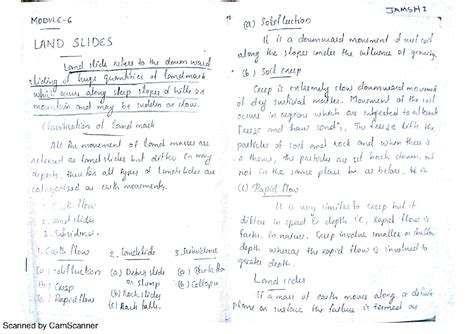 MODULE-6
LAND SLIDES
Land slide refers to the downward
sliding of huge quantities of landmark
which occurs along steep slopes of hills or
mountain and may be sudden or slow.
Classification of Land mark
All the movement of land masses are
referred as land slides but differ in many
, thus for all types of landslides are
categorised as earth movements.
1. Earth flow
2. Land slides
3. Subsidence.
1. Earth flow 2. landslide 3. Subsidence
(a) Solifluction (a) Debris slide (a)
(b) Creep or slump (b) Collapse
(c) Rapid flow (b) Rock slides
(c) Rock falls.
JAMSHI
(a) Solifluction
It is a downward movement of wet soil
along the slopes under the influence of gravity.
(b) Soil creep
Creep is extremely slow downward movement
of dry surficial matter. Movement of the soil
occurs in regions which are subjected to
freeze and thaw cond's. The freeze lifts the
particles of soil and rock and when there is
a thaw, the particles are set back down, but
not in the same place as before. It is
(c) Rapid flow
It is very similar to creep but it
differs in speed & depth i.e, Rapid flow is
faster, in nature. Creep involve smaller or
depth whereas the rapid flow is involved in
greater depth.
Land slides
If a mass of earth moves along a definite
plane or surface the failure is termed as
Scanned by CamScanner